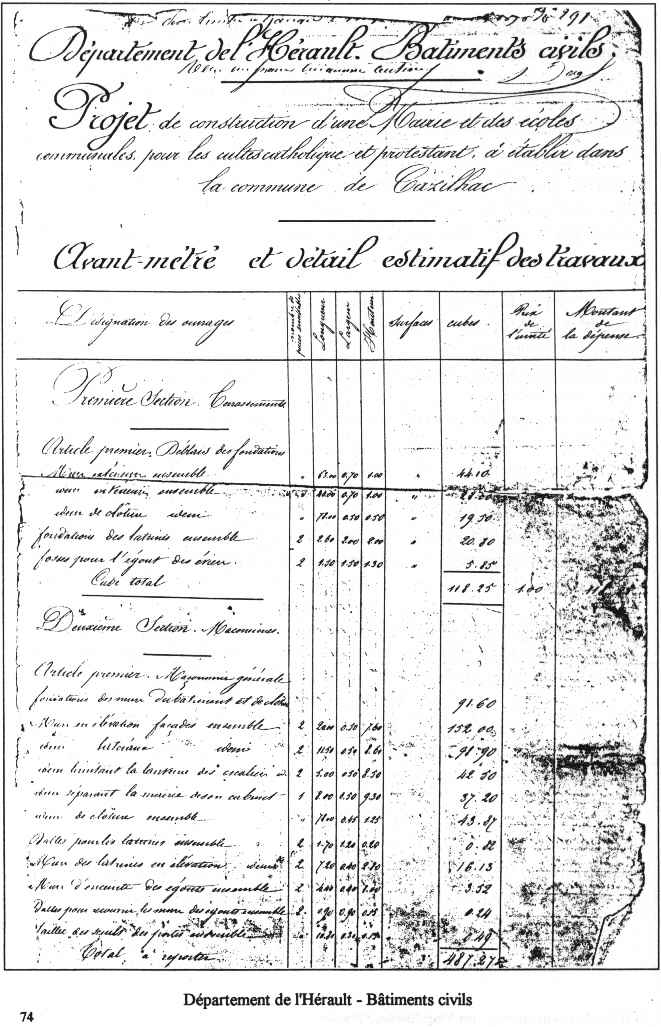 Département de l'Hérault. Batiments civils.
Projet de construction d'une Mairie et des écoles
communales, pour les cultes catholique et protestant, à établir dans
la commune de Cazilhac
Avant-métré et détail estimatif des travaux
Désignation des ouvrages Longueur Largeur Hauteur Surfaces cubes. Prix de l'unité Montant de la dépense.
Première Section. Terrassements
Article premier. Déblais des fondations
Murs extérieurs ensemble " 63.00 0.70 1.00 " 44.10
idem intérieurs ensemble 0.70 1.00 "
idem de clôture idem " 78.00 0.50 0.50 " 19.50
fondations des latrines ensemble 2 2.60 2.00 2.00 " 20.80
fosses pour l'égout des éviers 2 1.50 1.50 1.30 " 5.85
Cube total 118.25 1.00
Deuxième Section. Maçonneries.
Article premier. Maçonnerie générale
fondations des murs du bâtiment et de clôture 91.60
Murs en élévation façades ensemble 2 20.00 0.50 7.60 152.00
idem latéraux idem 2 11.50 91.90
idem limitant la lanterne des escaliers 2 5.00 0.50 8.50 42.50
idem séparant la mairie de son cabinet 1 8.00 0.50 9.30 37.20
idem de clôture ensemble " 78.00 0.45 1.25 43.87
Dalles pour les latrines ensemble 2 1.70 1.20 0.20 0.82
Murs des latrines en élévation idem 2 7.20 0.40 2.80 16.13
Murs d'enceinte des égouts ensemble 2 4.40 0.40 1.00 3.52
Dalles pour couvrir les murs des égouts ensemble 2 0.90 0.90 0.15 0.24
Tailles des seuils des portes ensemble 0.49
Total à reporter 487.27
Département de l'Hérault - Bâtiments civils
74